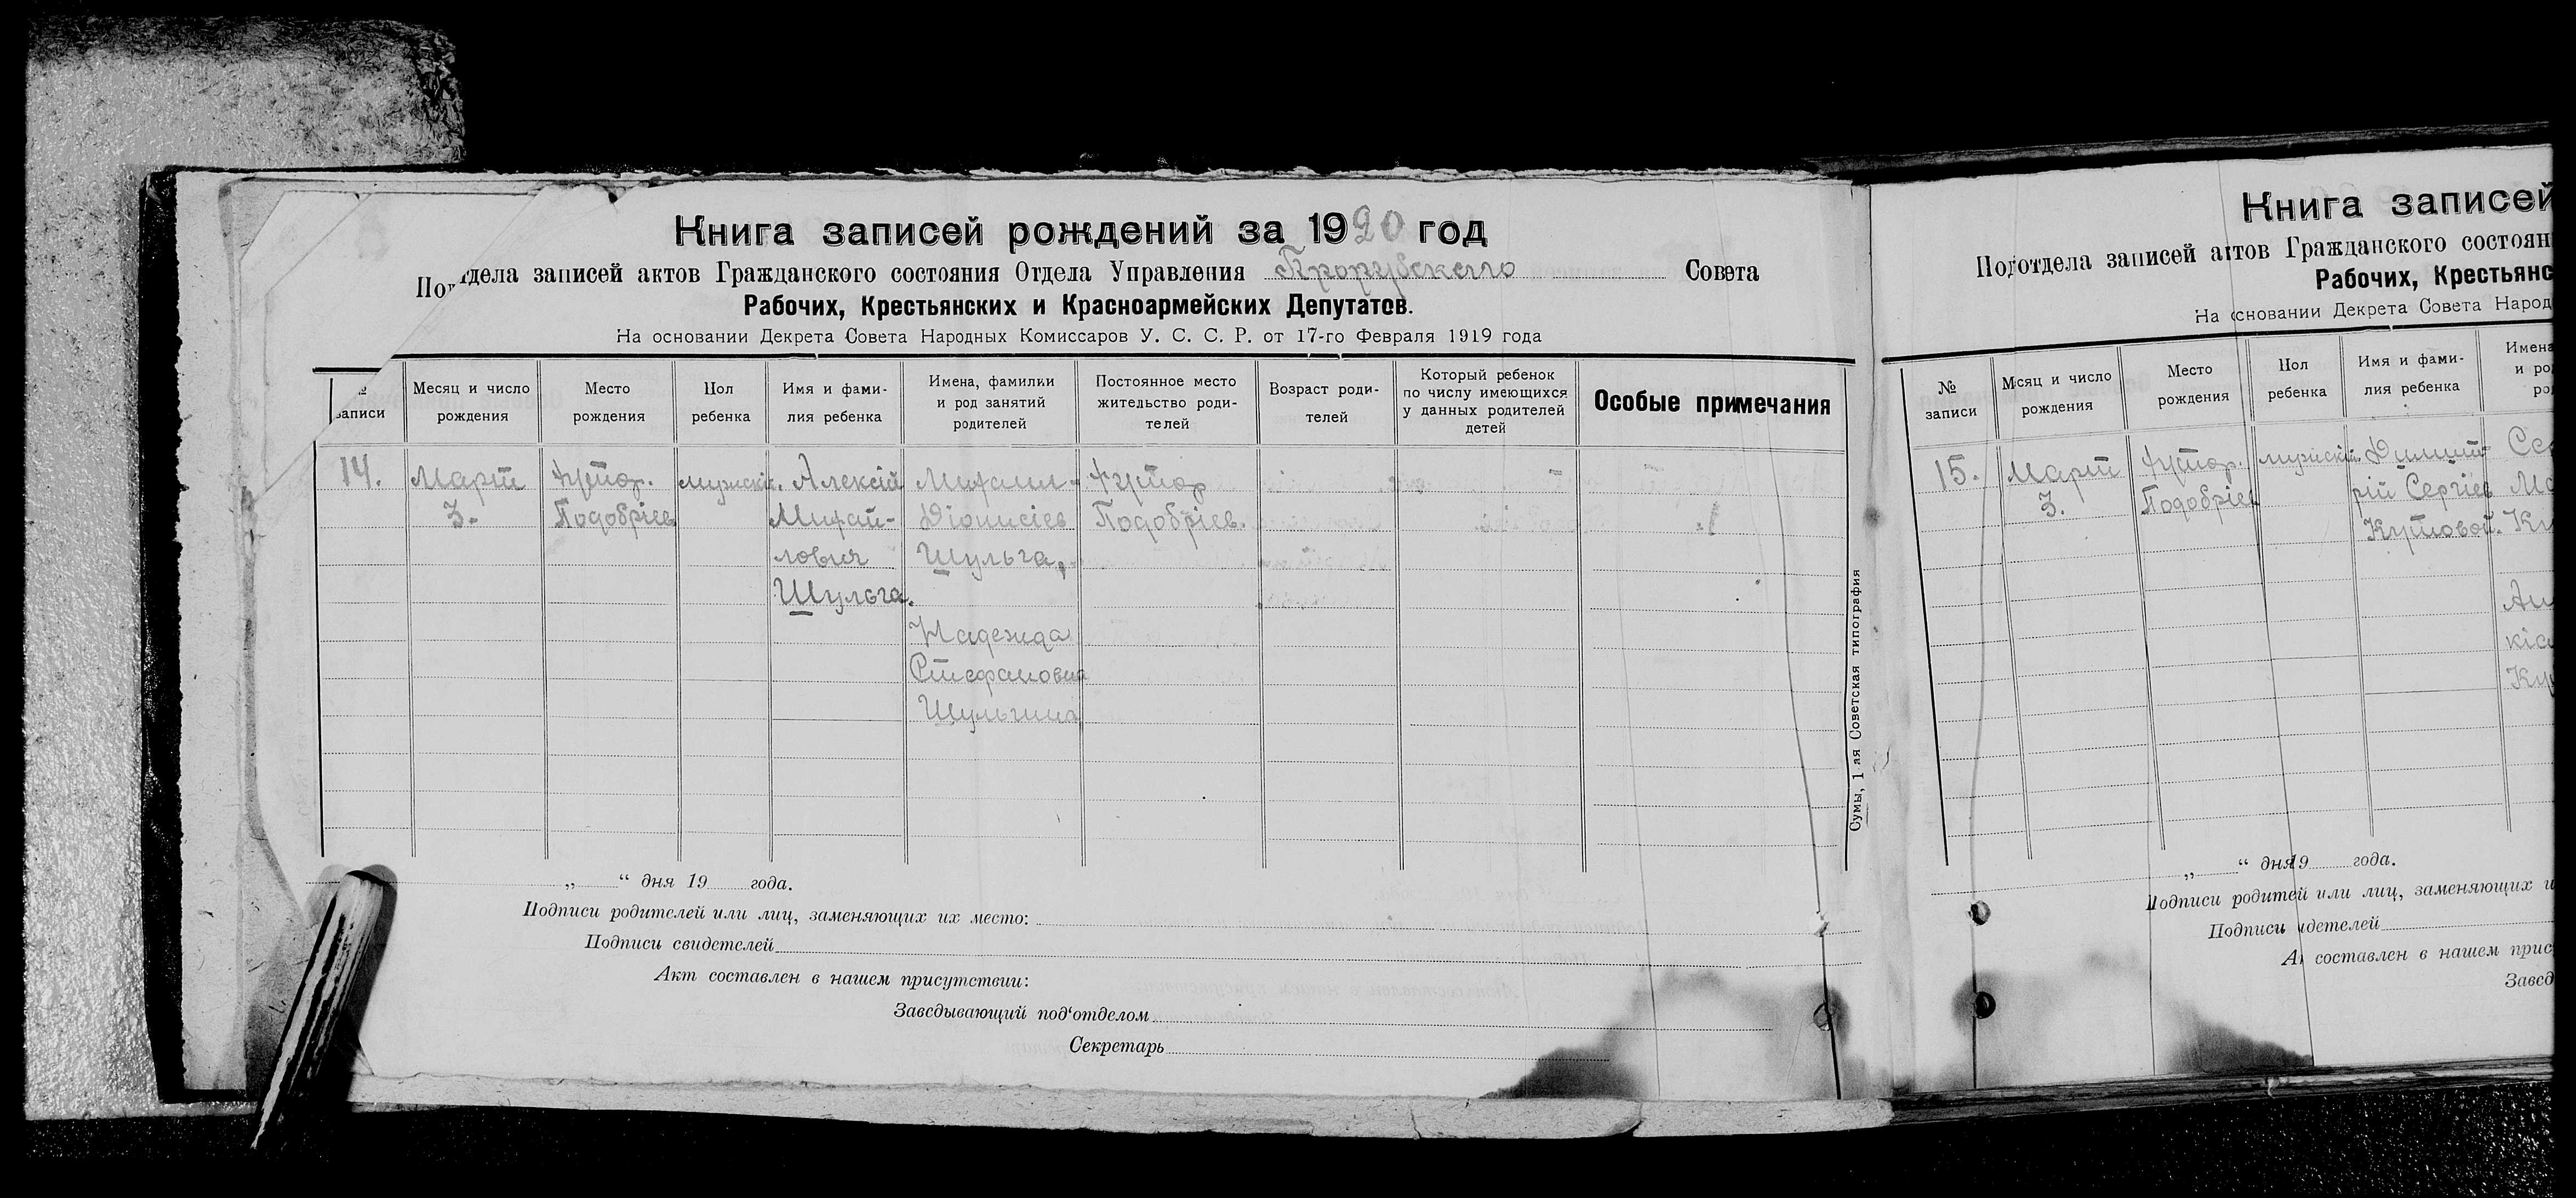 Книга записей рождений за 1920 год
Подотдела записей актов Гражданского состояния Отдела Управления Прорубского Совета
Рабочих, Крестьянских и Красноармейских Депутатов.
На основании Декрета Совета Народных Комиссаров У. С. С. Р. от 17-го Февраля 1919 года
№ записи
Месяц и число рождения
Место рождения
Пол ребенка
Имя и фами-
лия ребенка
Имена, фамилии
и род занятий
родителей
Постоянное место
жительство роди-
телей
Возраст роди-
телей
Который ребенок
по числу имеющихся
у данных родителей
детей
Особые примечания
14.
Март
3.
Хутор.
Подобріев
мужск.
Алексій
Михай-
лович
Шульга.
Михаил
Діонисіев
Шульга,
Надежда
Стефановна
Шульгина
Хутор
Подобріев.
„ “ дня 19 года.
Подписи родителей или лиц, заменяющих их место:
Подписи свидетелей
Акт составлен в нашем присутствии:
Заведывающий под‘отделом
Секретарь
Сумы, 1-ая Советская типография
Книга записей
Подотдела записей актов Гражданского состоян
Рабочих, Крестьянс
На основании Декрета Совета Народ
№ записи
Месяц и число рождения
Место рождения
Пол ребенка
Имя и фами-
лия ребенка
Имена
и ро
ро
15.
Март
3.
Хутор.
Подобріев
мужск.
Димит-
рій Сергіев
Кутовой.
„ “ дня 19 года.
Подписи родителей или лиц, заменяющих и
Подписи свидетелей
Акт составлен в нашем прис
Завед